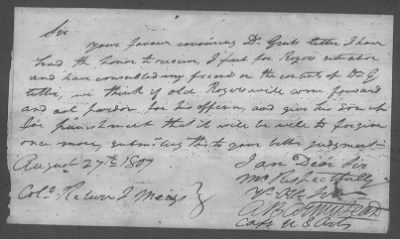 Sir
your favour covering Dr. Grubs letter I have
had the honor to receive, I feel for Rogers situation
and have consulted my second on the contents of Dr G
letter, we think if old Rogers will come forward
and ask pardon for his offence, and give his Son up
for punishment that it will be well to forgive
once more, submitting this to your better judgment
I am Dear Sir
August 27th 1807
Mo Respectfully
Colo. Return J Meigs
A B Armistead
Capt U S Arts